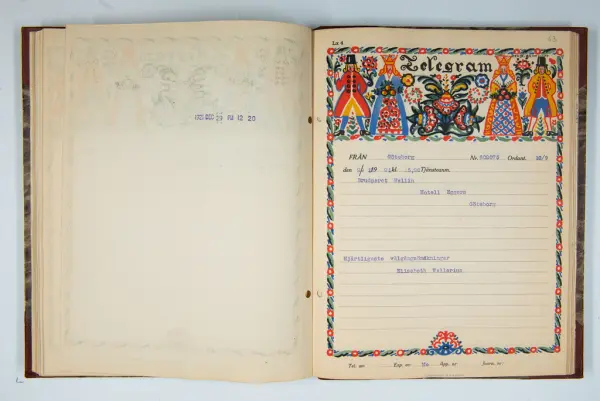 1925 DEC 29 PM 12 20
Lx 4
Telegram
FRÅN Göteborg Nr. Ordant. 10/9
den 19 kl Tjänsteanm.
Brudparet Wallin
Hotell Eggers
Göteborg
Hjärtligaste välgångsönskningar
Elisabeth Wallerius
Tel. nr Exp. nr App. nr Anm. nr